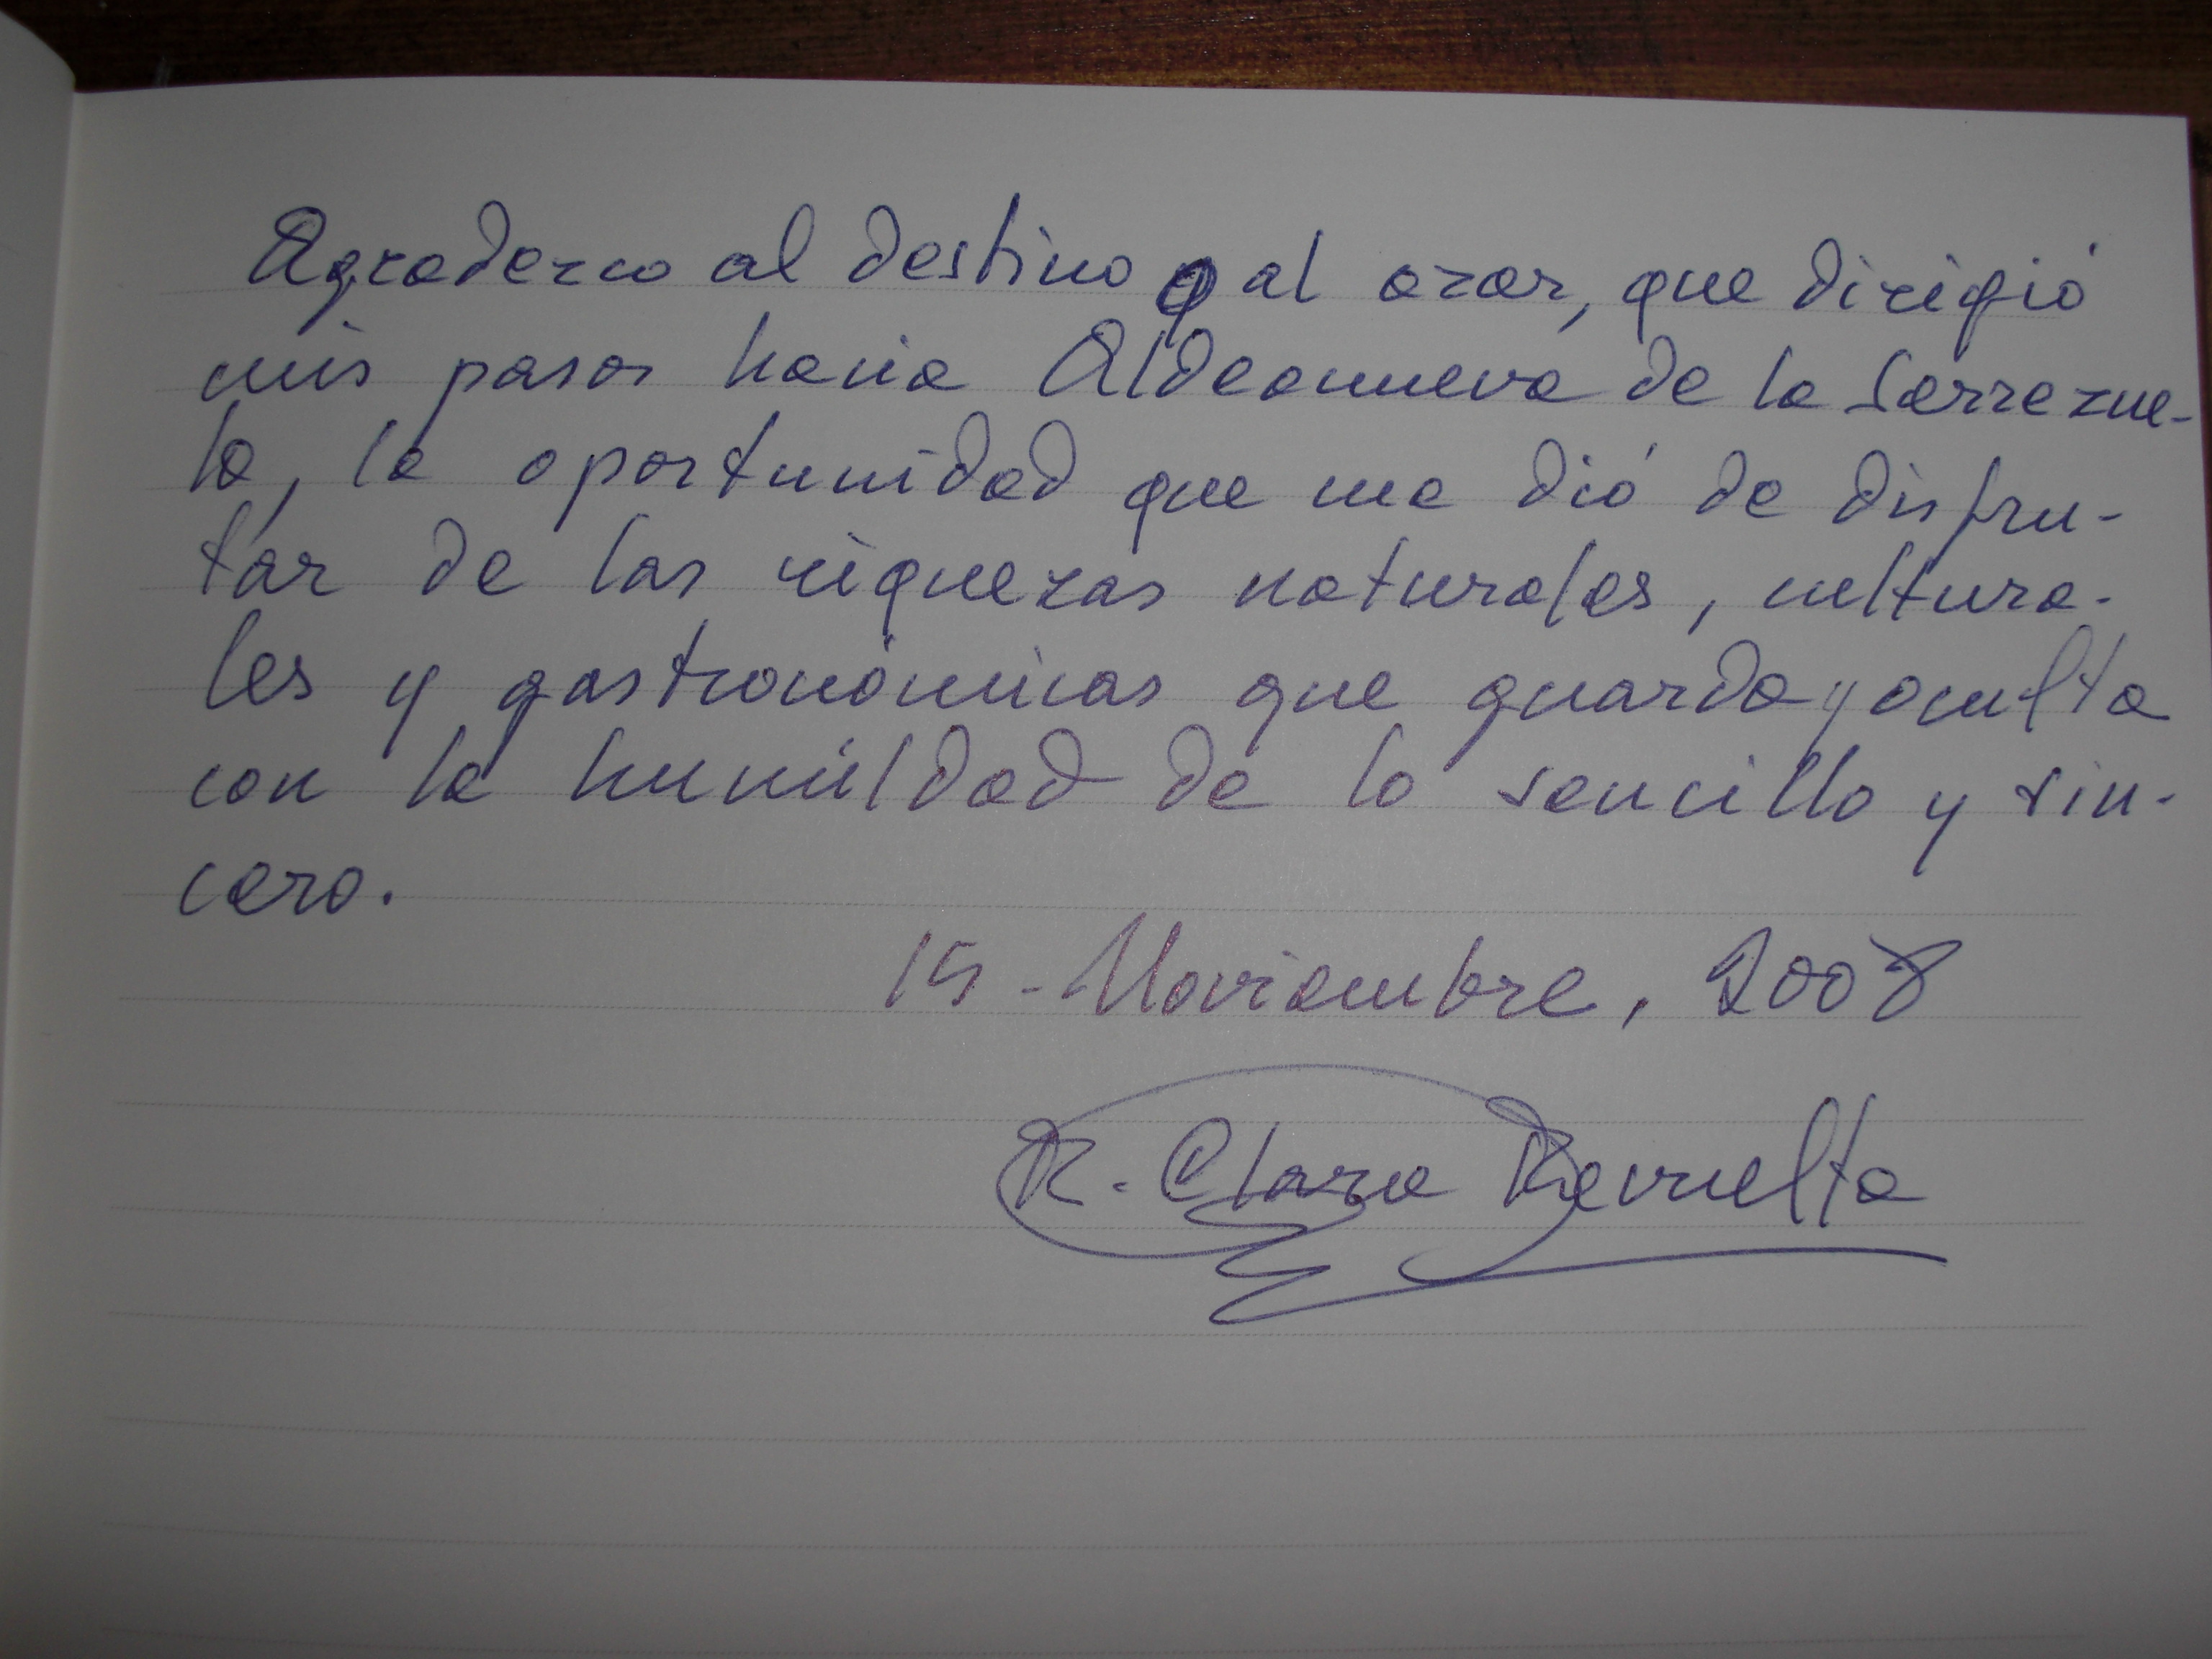 Agradezco al destino o al azar, que dirigió
mis pasos hacia Aldeanueva de la Serrezue-
la, la oportunidad que me dió de disfru-
tar de las riquezas naturales, cultura-
les y gastronómicas que guarda y oculta
con la humildad de lo sencillo y sin-
cero.
15 - Noviembre, 2008
R. Clara Revuelta